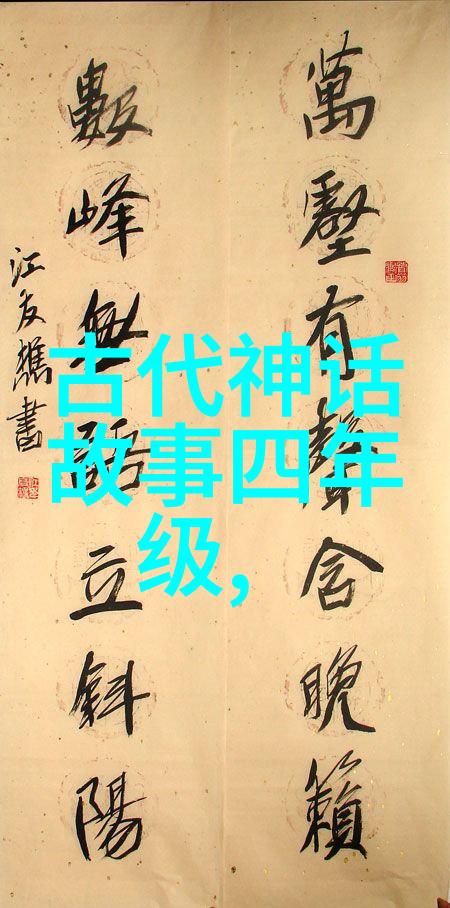 萬壑有聲含晚籟
數峰無語立斜陽
江友樵書
古代神话
故事四年
级,